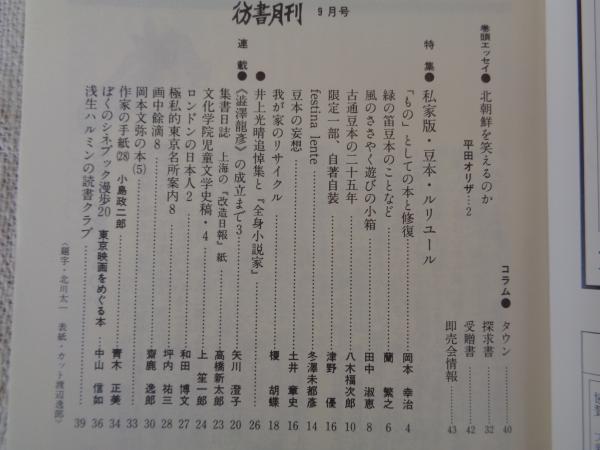 彷書月刊 9月号
巻頭エッセイ● 北朝鮮を笑えるのか
平田オリザ…2
特集● 私家版・豆本・ルリユール
「もの」としての本と修復 岡本 幸治 4
緑の笛豆本のことなど 蘭 繁之 6
風のささやく遊びの小箱 田中 淑恵 8
古通豆本の二十五年 八木福次郎 10
限定一部、自著自装 津野 優 16
festina lente 冬澤未都彦 14
豆本の妄想 土井 章史 16
我が家のリサイクル 榎 胡蝶 18
● 井上光晴追悼集と『全身小説家』 26
連載● 《澁澤龍彦》の成立まで3 矢川 澄子 20
集書日誌 上海の『改造日報』紙 高橋新太郎 23
文化学院児童文学史稿・4 上 笙一郎 24
ロンドンの日本人2 和田 博文 27
極私的東京名所案内8 坪内 祐三 28
画中餘滴8 齋鹿 逸郎 30
岡本文弥の本(5) 33
作家の手紙(28) 小島政二郎 青木 正美 34
ぼくのシネブック漫歩20 東京映画をめぐる本 中山 信如 36
浅生ハルミンの読書クラブ 39
コラム● タウン 40
探求書 32
受贈書 42
即売会情報 43
〈題字・北川太一 表紙・カット渡辺逸郎〉